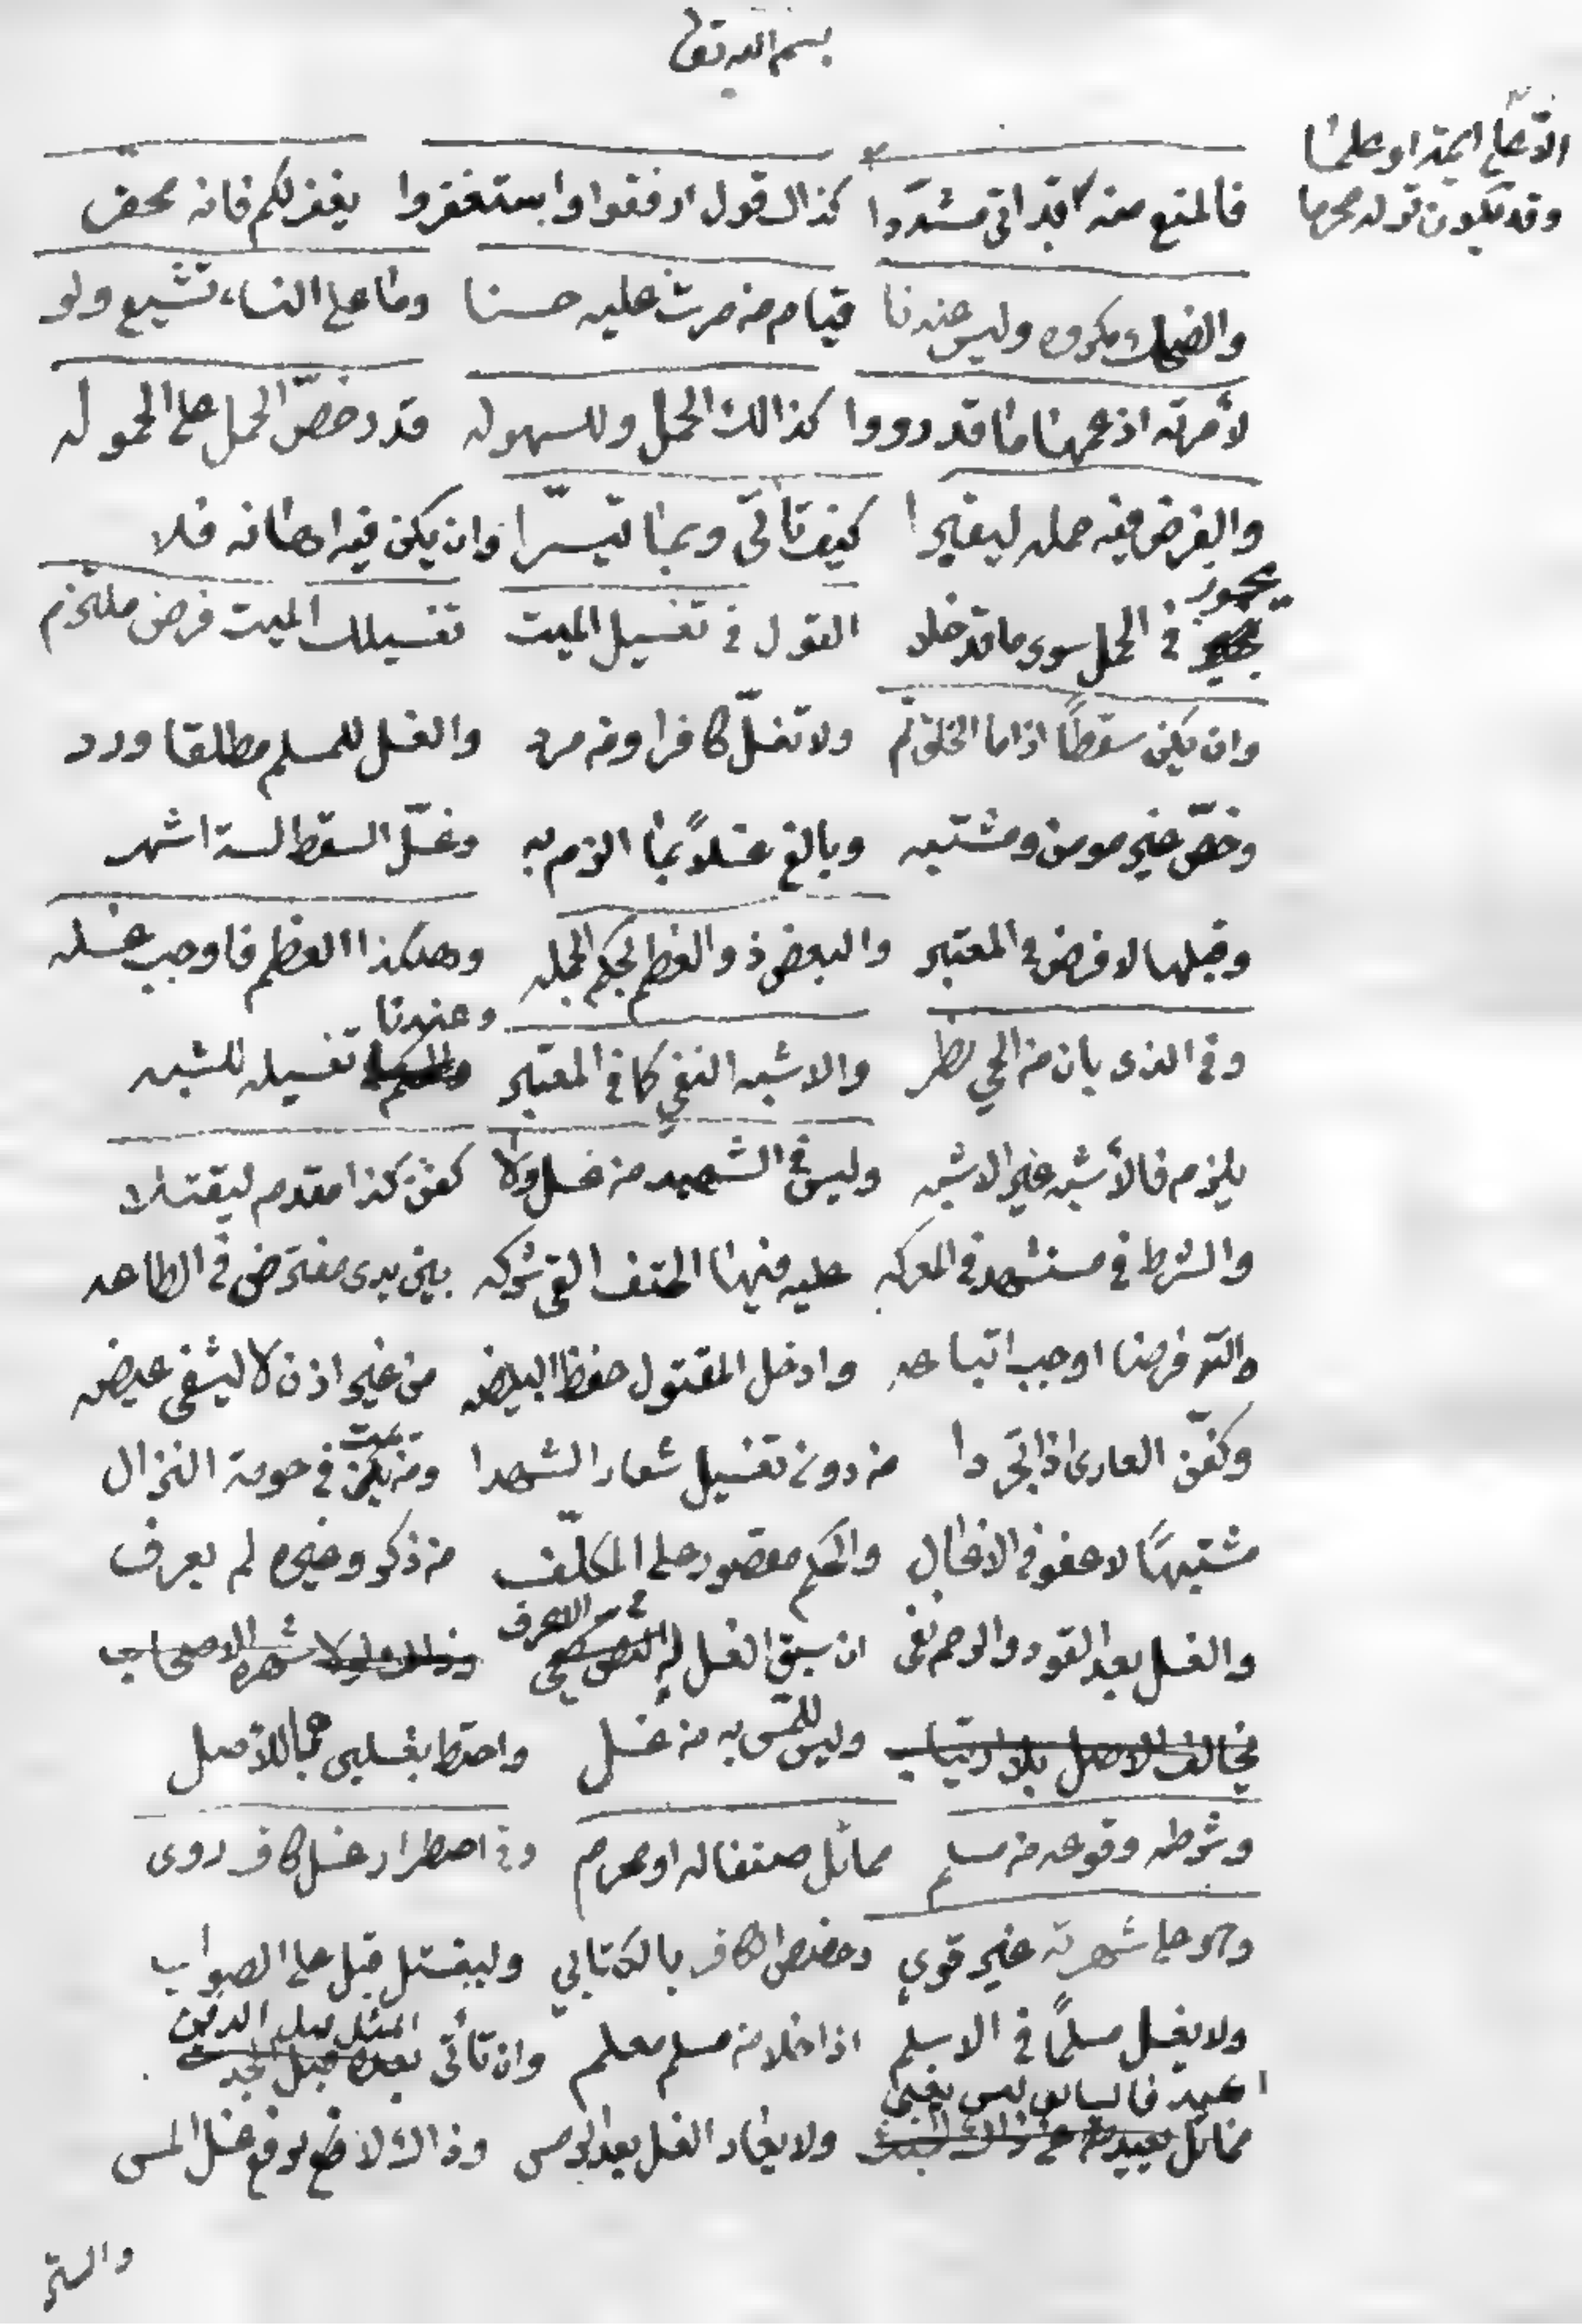 بسم الله تعا
الا على ايمة او علما
وقد يكون قوله محرما
فالمنع منه قد اتى مشددا كذاك قول ارفقوا واستغفروا يغفر لكم فانه محقر
والضحك مكروه وليس عندنا قيام من مرت عليه حسنا وما على النساء تشييع ولو
لأمرته اذ عمهنا ما قد رووا كذالك الحمل وللسهوله قد رخص الحمل على الحموله
والفرض فيه حمله ليقبرا كيف تأتى وبما تيسرا وان يكن فيه اهانه فلا
يجوز في الحمل سوى ما قد خلا القول في تغسيل الميت تغسيلك الميت فرض ملتزم
وان يكن سقطاً اذا ما الخلق تم ولا تغسل كافرا ومن مرد والغسل للمسلم مطلقا ورد
وخص غير مومن ومشتبه وبالغ غسلاً بما الزم به وغسل السقط لستة اشهر
وقبلها لا فرض في المعتبر والبعض ذو العظم بحكم الجمله وهكذا العظم فاوجب غسله
وفي الذي بان من الحي نظر والاشبه النفي كما في المعتبر وعندنا تغسيله للشبه
يلزم فالأشبه غير الاشبه وليس في الشهيد من غسل ولا كفن كذا مقدم ليقتلا
والشرط في مستشهد في المعركه عليه فيها الحتف القى شركه بين يدى مفترض في الطاعه
والله فرضا اوجب اتباعه وادخل المقتول حفظ البيضه من غير اذن لا ليشفى غيضه
وكفن العارى اذا تجردا من دون تغسيل شعار الشهدا ومن يمت في حومة النزال
مشتبها لا عفو في الاغسال والحكم مقصور على المكلف من ذكر وغيره لم يعرف
والغسل بعد القود والرجم نفى ان سبق الغسل له في الاعرف وذاك لولا شهرة الاصحاب
يخالف الاصل بلا ارتياب وليس للمس به من غسل واحتط بغسليهما للأصل
وشرطه وقوعه من مسلم مماثل صنفا له او محرم وفي اضطرار غسل كافر روى
وهو على شهرته غير قوي وخصص الكافر بالكتابي وليغتسل قبل على الصواب
ولا يغسل مسلماً في الاسلم اذا خلا من مسلم معلم وان تأتى المثل قبل الدفن
اعيد فالسابق ليس يغني
مماثل ولا يعاد الغسل بعد المس وذاك لا ضع يرفع غسل المس
والستر